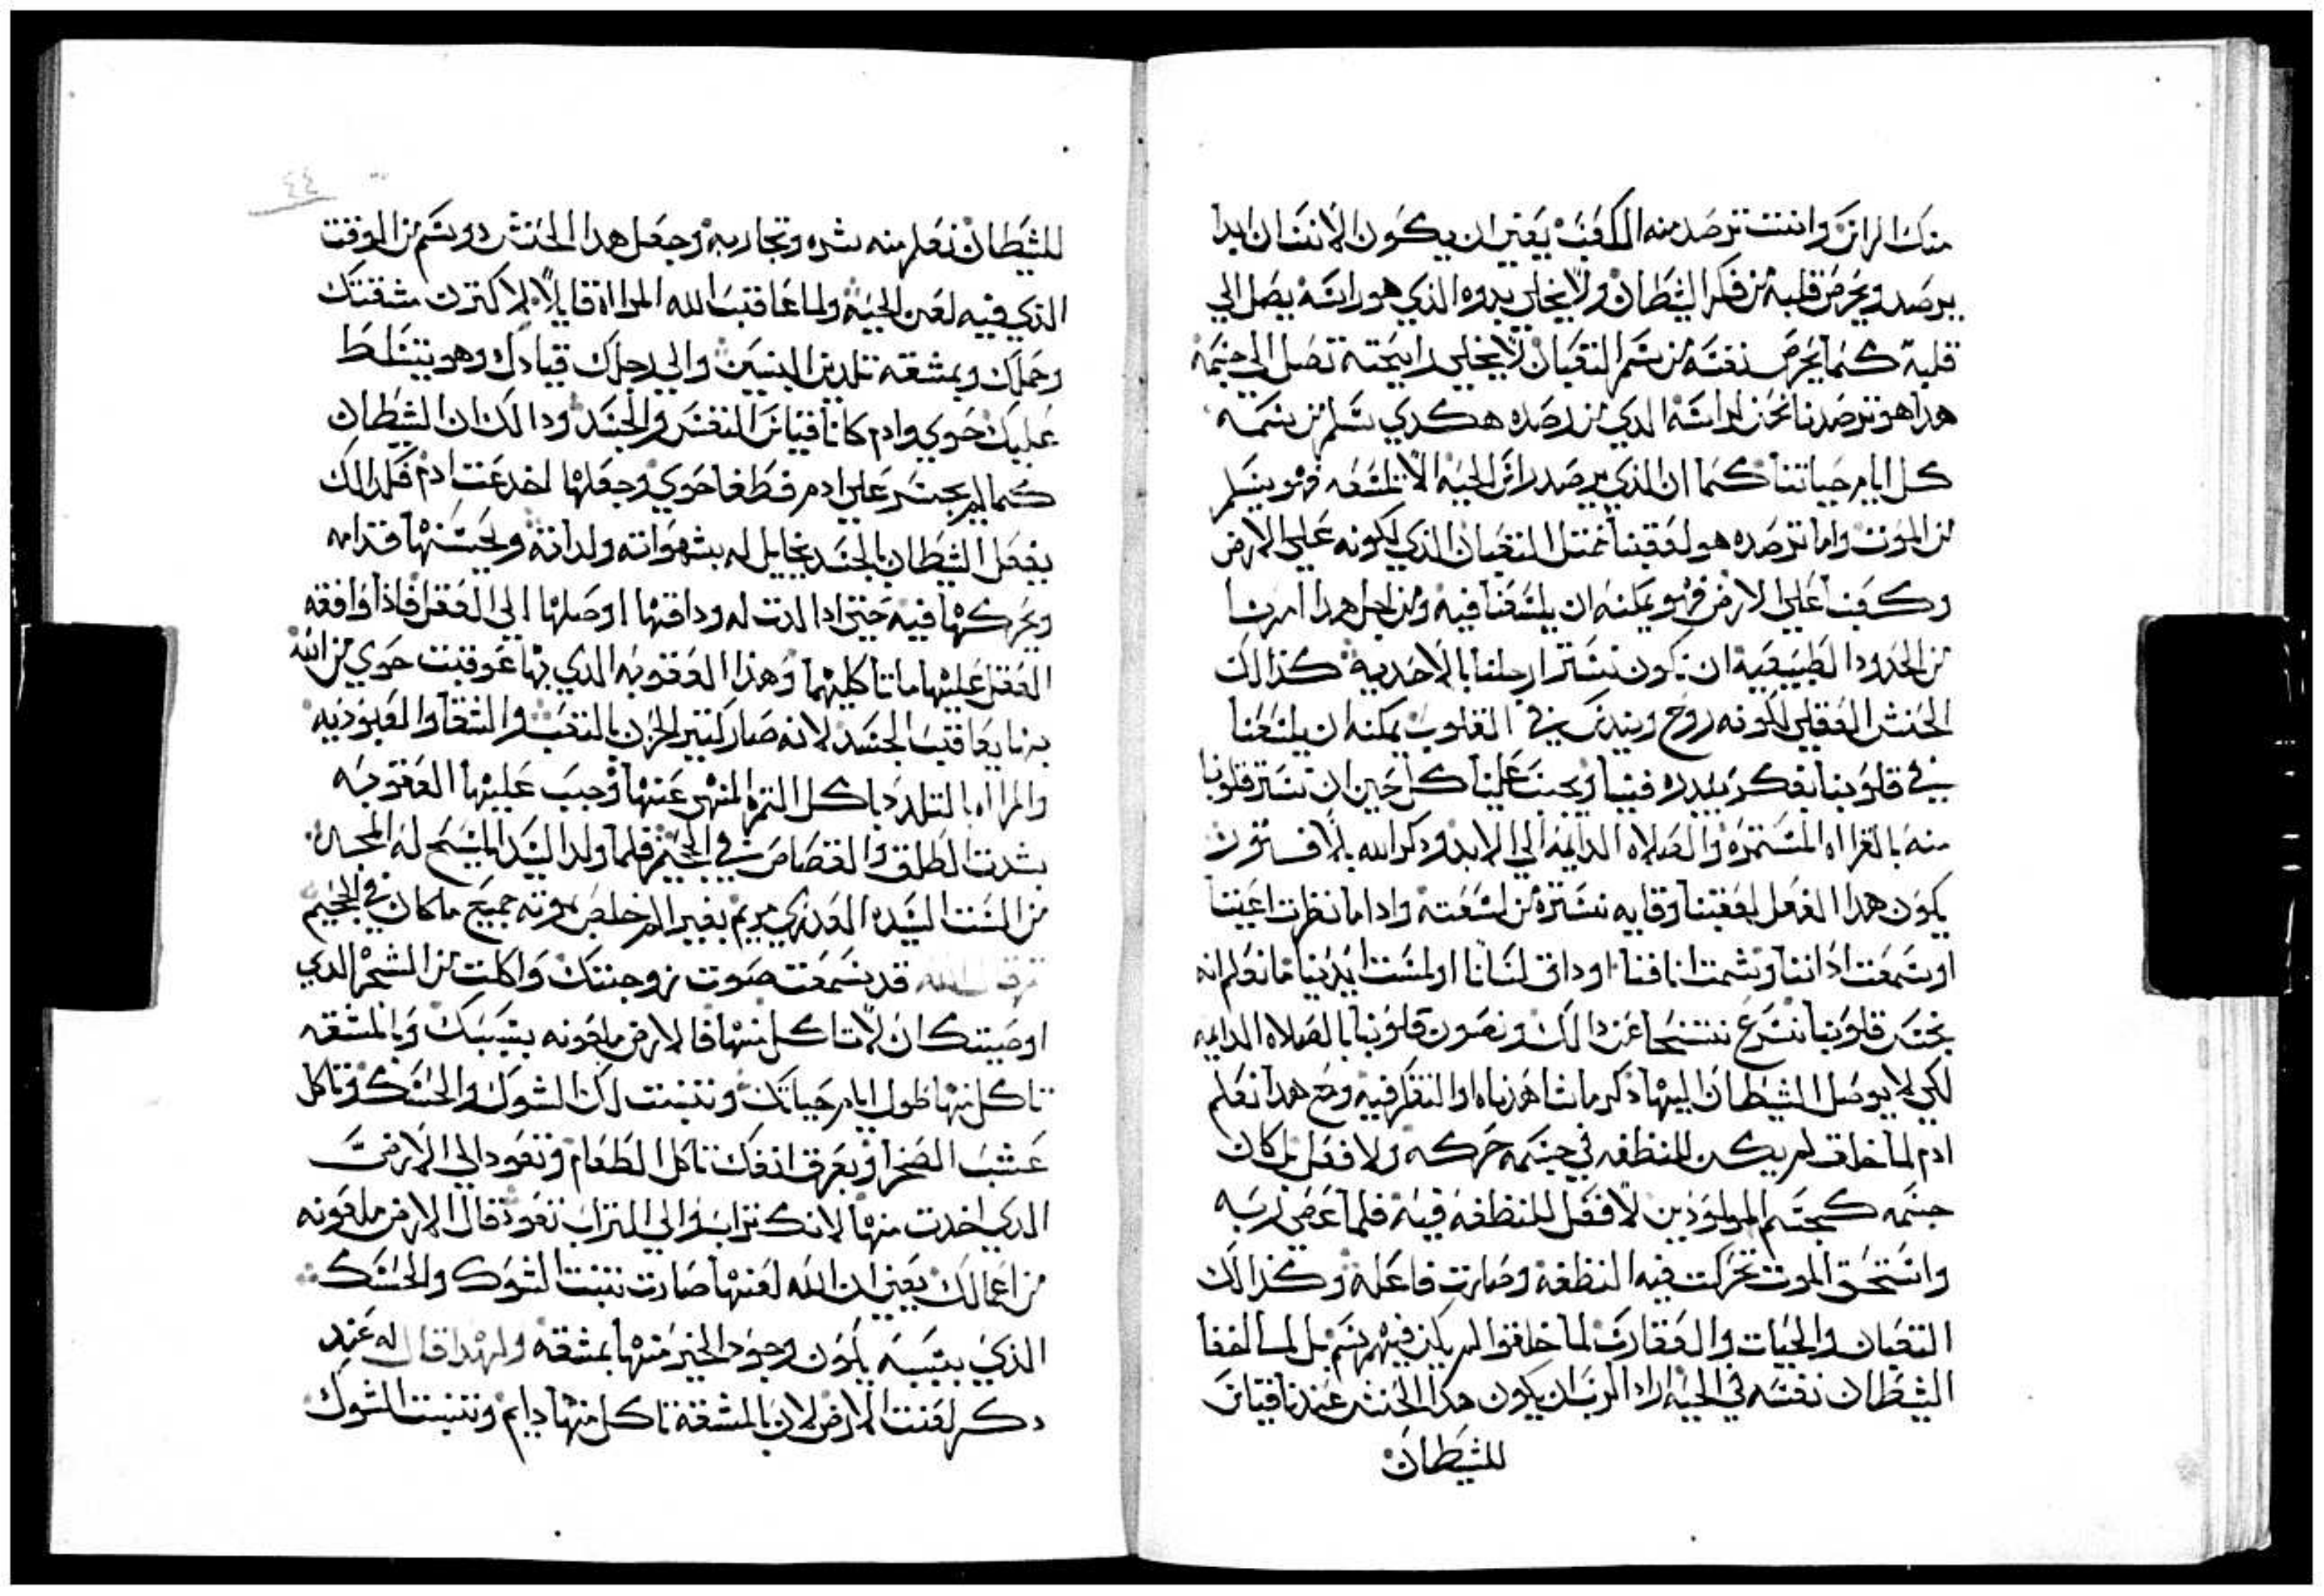 منك الراس وانت ترصد منه العقب يعني ان يكون الانسان ابدا
يرصد ويحرص قلبه من فكر الشيطان ولا يخلي بدوه الذي هو راسه يصل الي
قلبه كما يحرص نفسه من سم الثعبان لا يخلي رايحته تصل الي جسمه
هذا هو ترصدنا نحن لراسه الدي من رصده هكدي سلم من سمه
كل ايام حياتنا كما ان الذي يرصد راس الحيه الا تلسعه فهو يسلم
من الموت واما ترصده هو لعقبنا فمتل الثعبان الذي لكونه علي الارض
وكعبنا علي الارض فهو يمكنه ان يلسعنا فيه ومن اجل هدا امرنا
من الحدود الطبيعيه ان نكون نستر ارجلنا بالاحديه كذالك
الحنش العقلي لكونه روح ويندس في القلوب يمكنه ان يلسعنا
في قلوبنا بفكر يبدره فينا ويجب علينا كل حين ان نستر قلوبنا
منه بالقرااه المستمره والصلاه الدايمه الي الابد ودكر الله بلا فتور
يكون هدا الفعل لعقبنا وقايه نستره من لسعته وادا ما نظرت اعيننا
او سمعت اداننا وشمت انافنا او داق لساننا او لمست ايدينا ما نعلم انه
ينجس قلوبنا نسرع نتنحا عن دالك ونصون قلوبنا بالصلاه الدايمه
لكي لا يوصل الشيطان اليها ذكر ما شاهدناه او التفكر فيه ومع هدا نعلم
ادم لما خلق لم يكن للنطفه في جسمه حركه ولا فعل بل كان
جسمه كجسم المولودين لا فعل للنطفه فيه فلما عصي لربه
واستحق الموت تحركت فيه النطفه وصارت فاعله وكذالك
الثعبان والحيات والعقارب لما خلقوا لم يكن فيهم سم بل لما اخفا
الشيطان نفسه في الحيه اراد الرب ان يكون هدا الحنش عندنا قياس
للشيطان
٤٤
للشيطان نعلم منه شره وتجاربه وجعل هدا الحنش دو سم من الوقت
الذي فيه لعن الحيه ولما عاقب الله المرااه قايلا لاكترن مشقتك
وحملك وبمشقه تلدين البنين والي رجلك قيادك وهو يتسلط
عليك حوي وادم كانا قياس النفس والجسد ودالك ان الشيطان
كما لم يجسر علي ادم فطغا حوي وجعلها اخدعت ادم فكدالك
يفعل الشيطان بالجسد يخايل له بشهواته ولداته ويحسنها قدامه
ويحركها فيه حتي ادا لدت له وداقها اوصلها الي العقل فاذا وافقه
العقل عليها ماتا كليهما وهذا العقوبه الدي بها عوقبت حوي من الله
بها يعاقب الجسد لانه صار كتير الحزن بالتعب والشقا والعبوديه
والمرااه بالتلدد باكل التمره المنهي عنها وجبت عليها العقوبه
بشدت الطلق والقصاص في الجحيم فلما ولد السيد المسيح له المجد
من الست السيده العدري مريم بغير الم خلص بموته جميع ما كان في الجحيم
قد سمعت صوت زوجتك واكلت من الشجر الدي
اوصيتك ان لا تاكل منها فالارض ملعونه بسببك وبالمشقه
تاكل منها طول ايام حياتك وتنبت لك الشوك والحسك وتاكل
عشب الصخرا وبعرق انفك تاكل الطعام وتعود الي الارض
الدي اخدت منها لانك تراب والي التراب تعود قال الارض ملعونه
من اعمالك يعني ان الله لعنها صارت تنبت الشوك والحسك
الذي بسببه يكون وجود الخبز منها بمشقه ولهدا قال له عند
دكر لعنت الارض لان بالمشقه تاكل منها دايم وتنبت الشوك